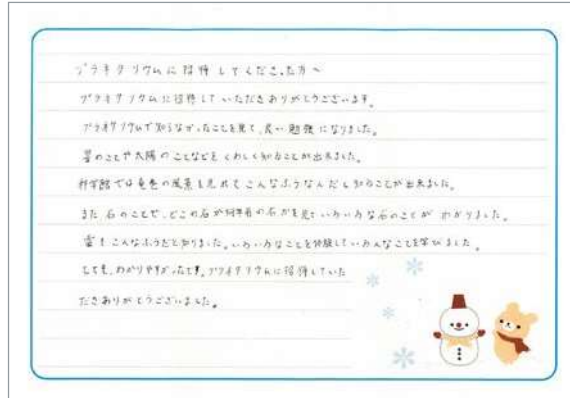 プラネタリウムに招待してくださった方へ
プラネタリウムに招待していただきありがとうございます。
プラネタリウムで知らなかったことを見て、良い勉強になりました。
星のことや太陽のことなどをくわしく知ることが出来ました。
科学館では竜巻の風景を見れてこんなふうなんだと知ることが出来ました。
また、石のことで、どこの石が何年前の石かを見ていろいろな石のことが わかりました。
雲もこんなふうだと知りました。いろいろなことを体験していろんなことを学びました。
とても、わかりやすかったです。プラネタリウムに招待していた
だきありがとうございました。